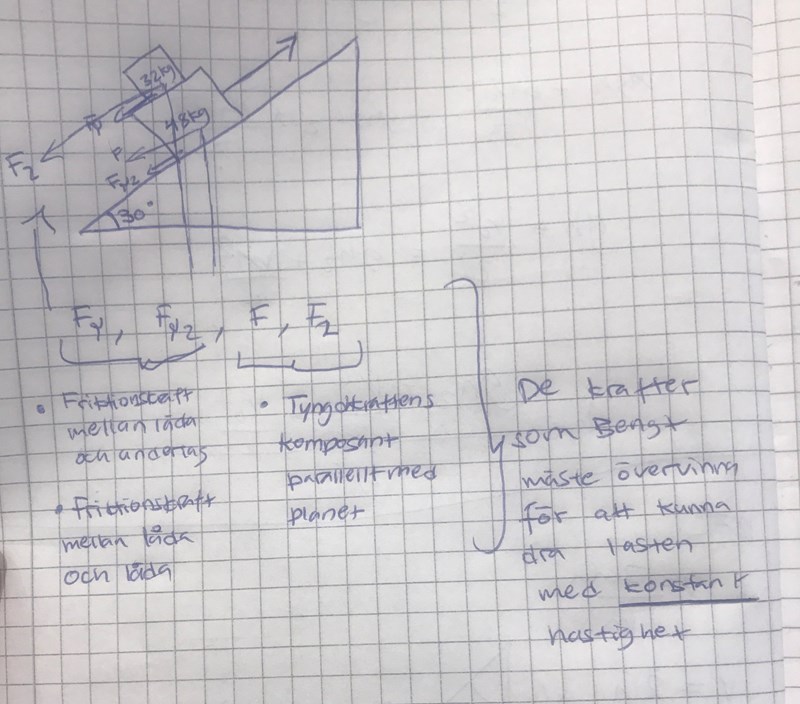 32kg
48kg
Fγ
F
F₂
Fγ2
30°
Fγ, Fγ2, F, F₂
• Friktionskraft
mellan låda
och underlag
• Friktionskraft
mellan låda
och låda
• Tyngdkraftens
komposant
parallellt med
planet
De krafter
som Bengt
måste övervinna
för att kunna
dra lasten
med konstant
hastighet